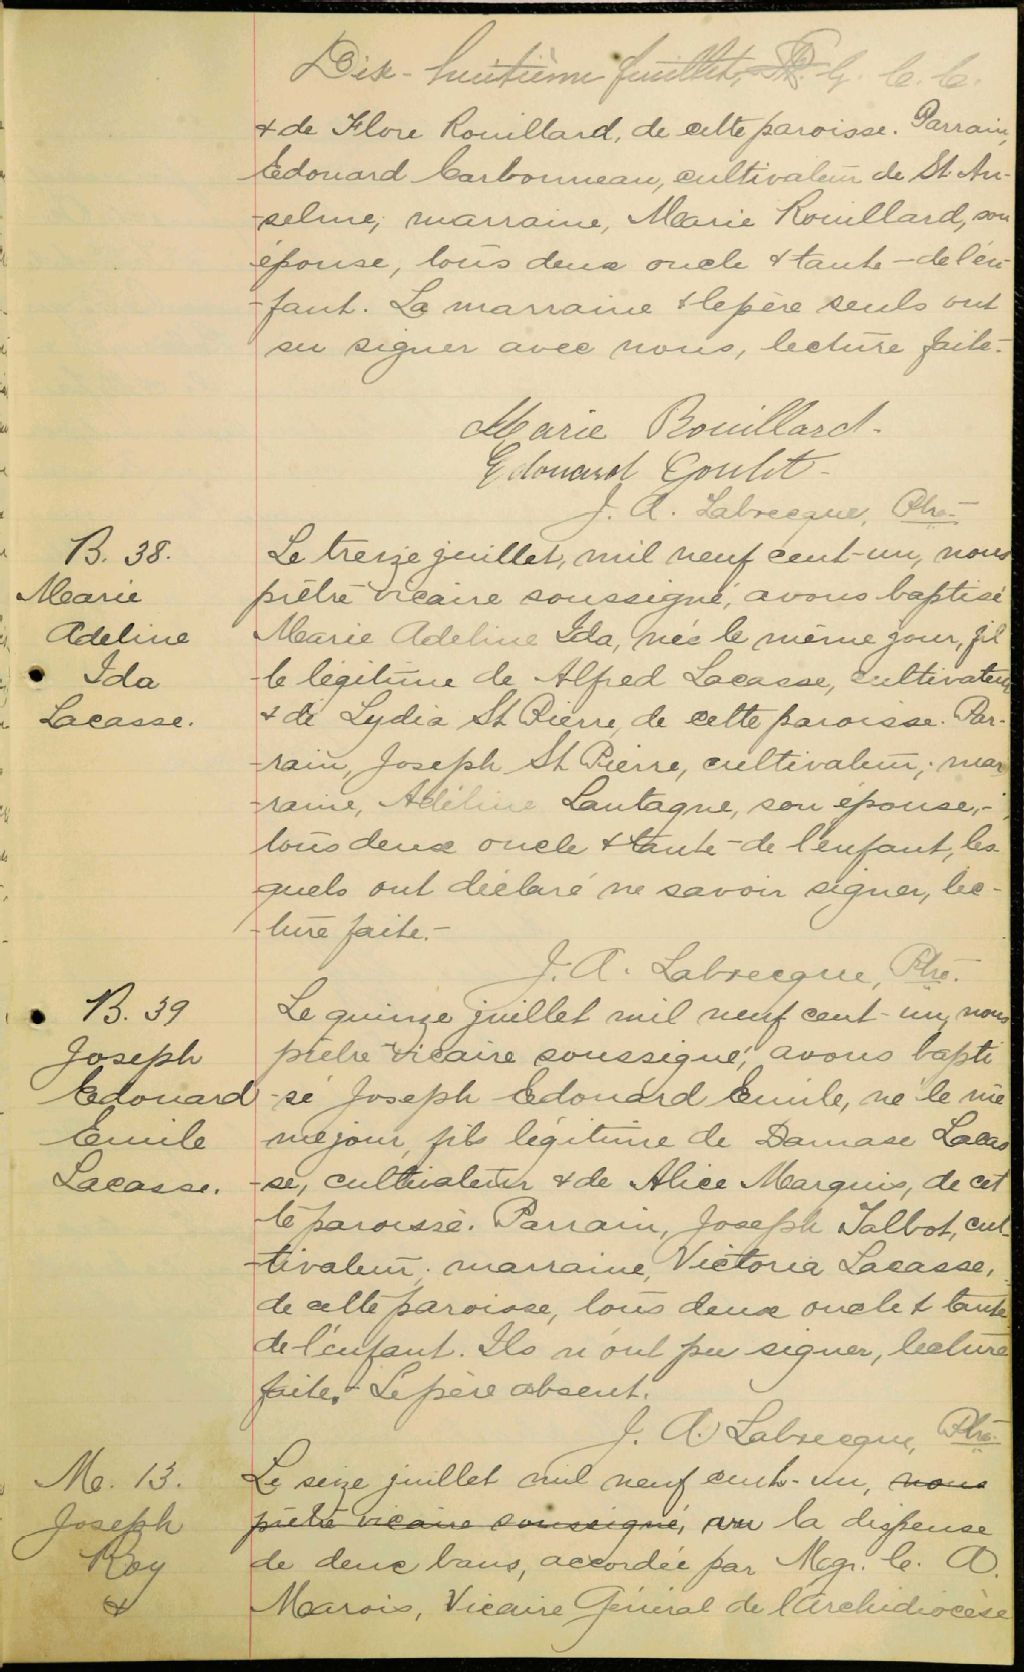 Dix-huitième feuillet,
& de Flore Rouillard, de cette paroisse. Parrain,
Edouard Carbonneau, cultivateur de St. An-
-selme; marraine, Marie Rouillard, son
épouse, tous deux oncle & tante de l'en-
-fant. La marraine & le père seuls ont
su signer avec nous, lecture faite.-
Marie Rouillard-
Edouard Goulet-
J. A. Labrecque, Ptre.
B. 38.
Marie
Adeline
Ida
Lacasse.
Le treize juillet, mil neuf cent-un, nous
prêtre vicaire soussigné, avons baptisé
Marie Adeline Ida, née le même jour, fil
-le légitime de Alfred Lacasse, cultivateur
& de Lydia St Pierre, de cette paroisse. Par-
-rain, Joseph St Pierre, cultivateur; mar
-raine, Adéline Lantagne, son épouse,-
tous deux oncle & tante de l'enfant, les
quels ont déclaré ne savoir signer, lec-
-ture faite.-
J. A. Labrecque, Ptre.
B. 39
Joseph
Edouard
Emile
Lacasse.
Le quinze juillet mil neuf cent-un, nous
prêtre vicaire soussigné, avons bapti
-sé Joseph Edouard Emile, né le mê
me jour, fils légitime de Damase Lacas
-se, cultivateur & de Alice Marquis, de cet
-te paroisse. Parrain, Joseph Talbot, cul-
-tivateur; marraine, Victoria Lacasse,
de cette paroisse, tous deux oncle & tante
de l'enfant. Ils n'ont pu signer, lecture
faite.- Le père absent.
J. A. Labrecque, Ptre.
M. 13.
Joseph
Roy
&
Le seize juillet mil neuf cent-un, nous
prêtre vicaire soussigné, vu la dispense
de deux bans, accordée par Mgr. C. A.
Marois, Vicaire Général de l'Archidiocèse